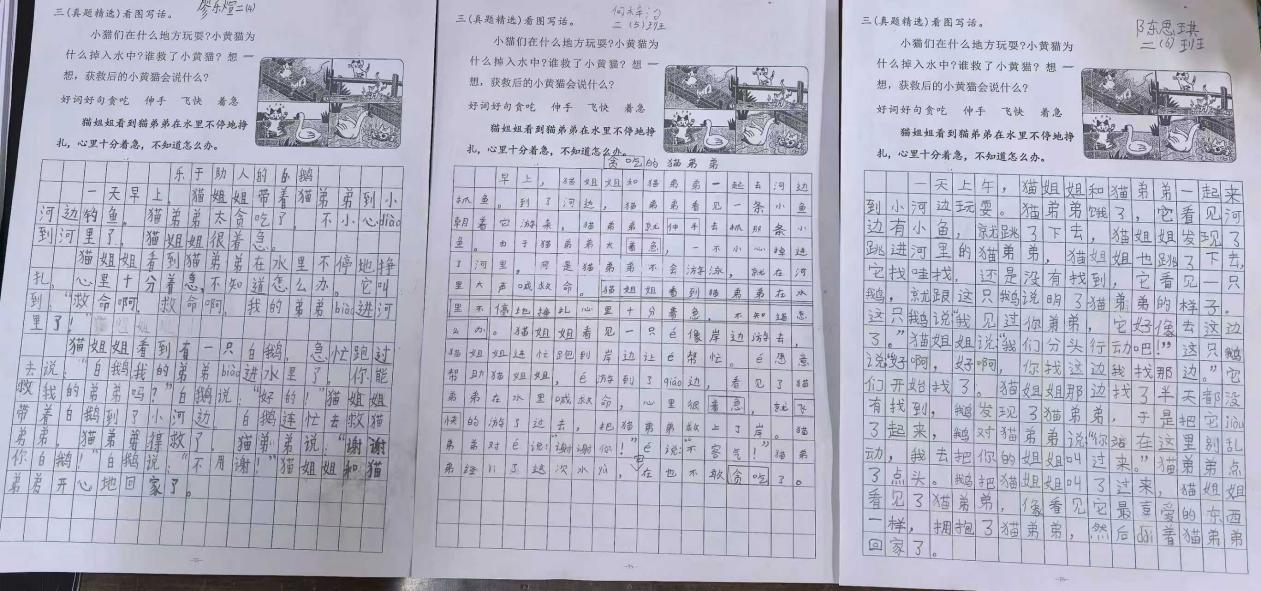 廖乐煊二(4)
三(真题精选)看图写话。
小猫们在什么地方玩耍?小黄猫为
什么掉入水中?谁救了小黄猫?想一
想,获救后的小黄猫会说什么?
好词好句贪吃 伸手 飞快 着急
猫姐姐看到猫弟弟在水里不停地挣
扎,心里十分着急,不知道怎么办。
乐于助人的白鹅
一天早上,猫姐姐带着猫弟弟到小
河边钓鱼。猫弟弟太贪吃了,不小心diào
到河里了,猫姐姐很着急。
猫姐姐看到猫弟弟在水里不停地挣
扎,心里十分着急,不知道怎么办。它叫
到:“救命啊,救命啊,我的弟弟biào进河
里了!”
猫姐姐看到有一只白鹅,急忙跑过
去说:“白鹅我的弟弟biào进水里了,你能
救我的弟弟吗?”白鹅说:“好的!”猫姐姐
带着白鹅到了小河边,白鹅连忙去救猫
弟弟,猫弟弟得救了,猫弟弟说:“谢谢
你白鹅!”白鹅说:“不用谢!”猫姐姐和猫
弟弟开心地回家了。
二(5)班
三(真题精选)看图写话。
小猫们在什么地方玩耍?小黄猫为
什么掉入水中?谁救了小黄猫?想一
想,获救后的小黄猫会说什么?
好词好句贪吃 伸手 飞快 着急
猫姐姐看到猫弟弟在水里不停地挣
扎,心里十分着急,不知道怎么办。
贪吃的猫弟弟
早上,猫姐姐和猫弟弟一起去河边
抓鱼。到了河边,猫弟弟看见一条小鱼
朝着它游来,猫弟弟就伸手去抓那条小
鱼。由于猫弟弟太着急,一不小心掉进
了河里。可是猫弟弟不会游泳,就在河
里大声喊救命。猫姐姐看到猫弟弟在水
里不停地挣扎心里十分着急,不知道怎
么办。猫姐姐看见一只é像岸边游去,
猫姐姐连忙跑到岸边让é帮忙。é愿意
帮助猫姐姐,é游到了qiáo边,看见了猫
弟弟在水里喊救命,心里很着急,就飞
快的游了过去,把猫弟弟救上了岸。猫
弟弟对é说:“谢谢你!”é说:“不客气!”猫弟
弟经川了这次水yù,它在也不敢贪吃了。
-75-
陈思琪
二(6)班
三(真题精选)看图写话。
小猫们在什么地方玩耍?小黄猫为
什么掉入水中?谁救了小黄猫?想一
想,获救后的小黄猫会说什么?
好词好句贪吃 伸手 飞快 着急
猫姐姐看到猫弟弟在水里不停地挣
扎,心里十分着急,不知道怎么办。
一天上午,猫姐姐和猫弟弟一起来
到小河边玩耍。猫弟弟饿了,它看见河
边有小鱼,就跳了下去,猫姐姐发现了
跳进河里的猫弟弟,猫姐姐也跳了下去,
它找哇找,还是没有找到,它看见一只
鹅,就跟这只鹅说明了猫弟弟的样子。
这只鹅说“我见过你弟弟,它好像去这边
了。”猫姐姐说“我们分头行动吧!”这只鹅
说“好啊,好啊,你找这边我找那边。”它
们开始找了。猫姐姐那边找了半天都没
有找到,鹅发现了猫弟弟,于是把它jiòu
了起来,鹅对猫弟弟说“你站在这里别乱
动,我去把你的姐姐叫过来。”猫弟弟点
了点头。鹅把猫姐姐叫了过来,猫姐姐
看见了猫弟弟,像看见它最喜爱的东西
一样,拥抱了猫弟弟,然后dài着猫弟弟
回家了。